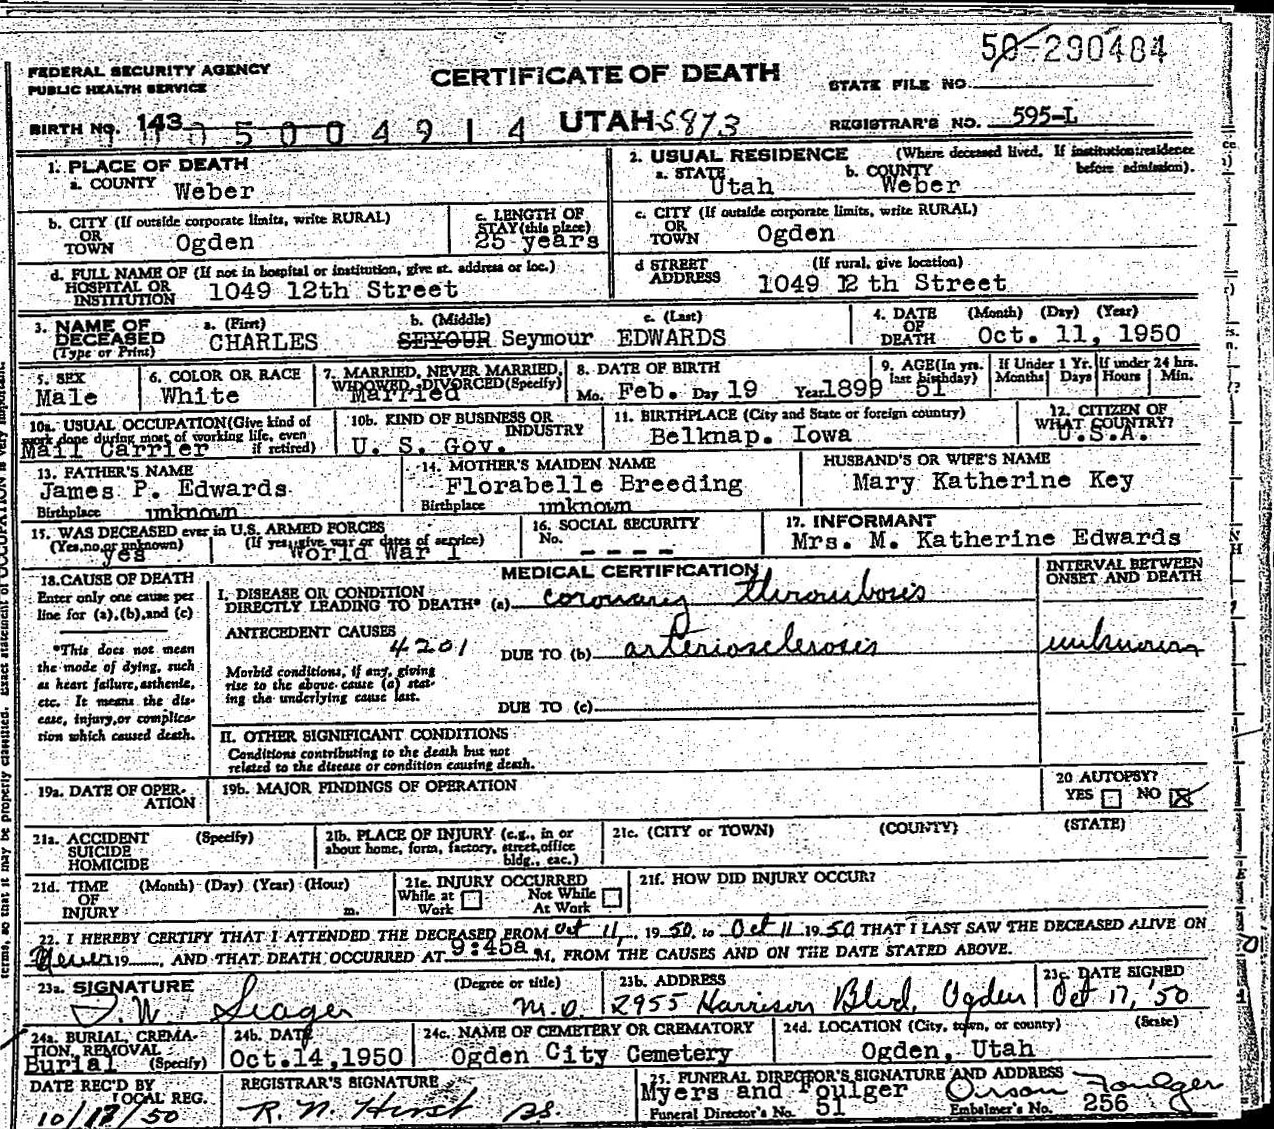 50-290484
FEDERAL SECURITY AGENCY
PUBLIC HEALTH SERVICE
CERTIFICATE OF DEATH
STATE FILE NO.
BIRTH NO. 143 0 5 0 0 4 9 1 4 UTAH 5873
REGISTRAR'S NO. 595-L
1. PLACE OF DEATH
a. COUNTY Weber
2. USUAL RESIDENCE (Where deceased lived. If institution: residence before admission).
a. STATE Utah b. COUNTY Weber
b. CITY (If outside corporate limits, write RURAL) OR TOWN Ogden
c. LENGTH OF STAY (this place) 25 years
c. CITY (If outside corporate limits, write RURAL) OR TOWN Ogden
d. FULL NAME OF (If not in hospital or institution, give st. address or loc.) HOSPITAL OR INSTITUTION 1049 12th Street
d STREET ADDRESS (If rural, give location) 1049 12 th Street
3. NAME OF DECEASED (Type or Print) a. (First) CHARLES b. (Middle) SEYOUR Seymour c. (Last) EDWARDS
4. DATE OF DEATH (Month) (Day) (Year) Oct. 11, 1950
5. SEX Male
6. COLOR OR RACE White
7. MARRIED, NEVER MARRIED, WIDOWED, DIVORCED (Specify) Married
8. DATE OF BIRTH Mo. Feb. Day 19 Year 1899
9. AGE (In yrs. last birthday) 51
If Under 1 Yr. Months Days
If under 24 hrs. Hours Min.
10a. USUAL OCCUPATION (Give kind of work done during most of working life, even if retired) Mail Carrier
10b. KIND OF BUSINESS OR INDUSTRY U. S. Gov.
11. BIRTHPLACE (City and State or foreign country) Belknap. Iowa
12. CITIZEN OF WHAT COUNTRY? U.S.A.
13. FATHER'S NAME James P. Edwards
Birthplace unknown
14. MOTHER'S MAIDEN NAME Florabelle Breeding
Birthplace unknown
HUSBAND'S OR WIFE'S NAME Mary Katherine Key
15. WAS DECEASED ever in U.S. ARMED FORCES (Yes, no, or unknown) yes (If yes, give war or dates of service) World War I
16. SOCIAL SECURITY No. ----
17. INFORMANT Mrs. M. Katherine Edwards
18. CAUSE OF DEATH
Enter only one cause per line for (a), (b), and (c)
*This does not mean the mode of dying, such as heart failure, asthenia, etc. It means the disease, injury, or complication which caused death.
MEDICAL CERTIFICATION
INTERVAL BETWEEN ONSET AND DEATH
I. DISEASE OR CONDITION DIRECTLY LEADING TO DEATH* (a) coronary thrombosis
ANTECEDENT CAUSES 4201
DUE TO (b) arteriosclerosis unknown
Morbid conditions, if any, giving rise to the above cause (a) stating the underlying cause last.
DUE TO (c)
II. OTHER SIGNIFICANT CONDITIONS
Conditions contributing to the death but not related to the disease or condition causing death.
19a. DATE OF OPERATION
19b. MAJOR FINDINGS OF OPERATION
20 AUTOPSY? YES NO X
21a. ACCIDENT SUICIDE HOMICIDE (Specify)
21b. PLACE OF INJURY (e.g., in or about home, form, factory, street, office bldg., eac.)
21c. (CITY or TOWN) (COUNTY) (STATE)
21d. TIME OF INJURY (Month) (Day) (Year) (Hour) m.
21e. INJURY OCCURRED While at Work Not While At Work
21f. HOW DID INJURY OCCUR?
22. I HEREBY CERTIFY THAT I ATTENDED THE DECEASED FROM Oct 11, 1950, to Oct 11 1950 THAT I LAST SAW THE DECEASED ALIVE ON
Never 19, AND THAT DEATH OCCURRED AT 9:45a M, FROM THE CAUSES AND ON THE DATE STATED ABOVE.
23a. SIGNATURE (Degree or title) Seager M.D.
23b. ADDRESS 2955 Harrison Blvd. Ogden
23c. DATE SIGNED Oct 17, '50
24a. BURIAL, CREMATION, REMOVAL (Specify) Burial
24b. DATE Oct. 14, 1950
24c. NAME OF CEMETERY OR CREMATORY Ogden City Cemetery
24d. LOCATION (City, town, or county) (State) Ogden, Utah
DATE REC'D BY LOCAL REG. 10/17/50
REGISTRAR'S SIGNATURE R. N. Hirst
25. FUNERAL DIRECTOR'S SIGNATURE AND ADDRESS
Myers and Foulger Orson Foulger
Funeral Director's No. 51 Embalmer's No. 256